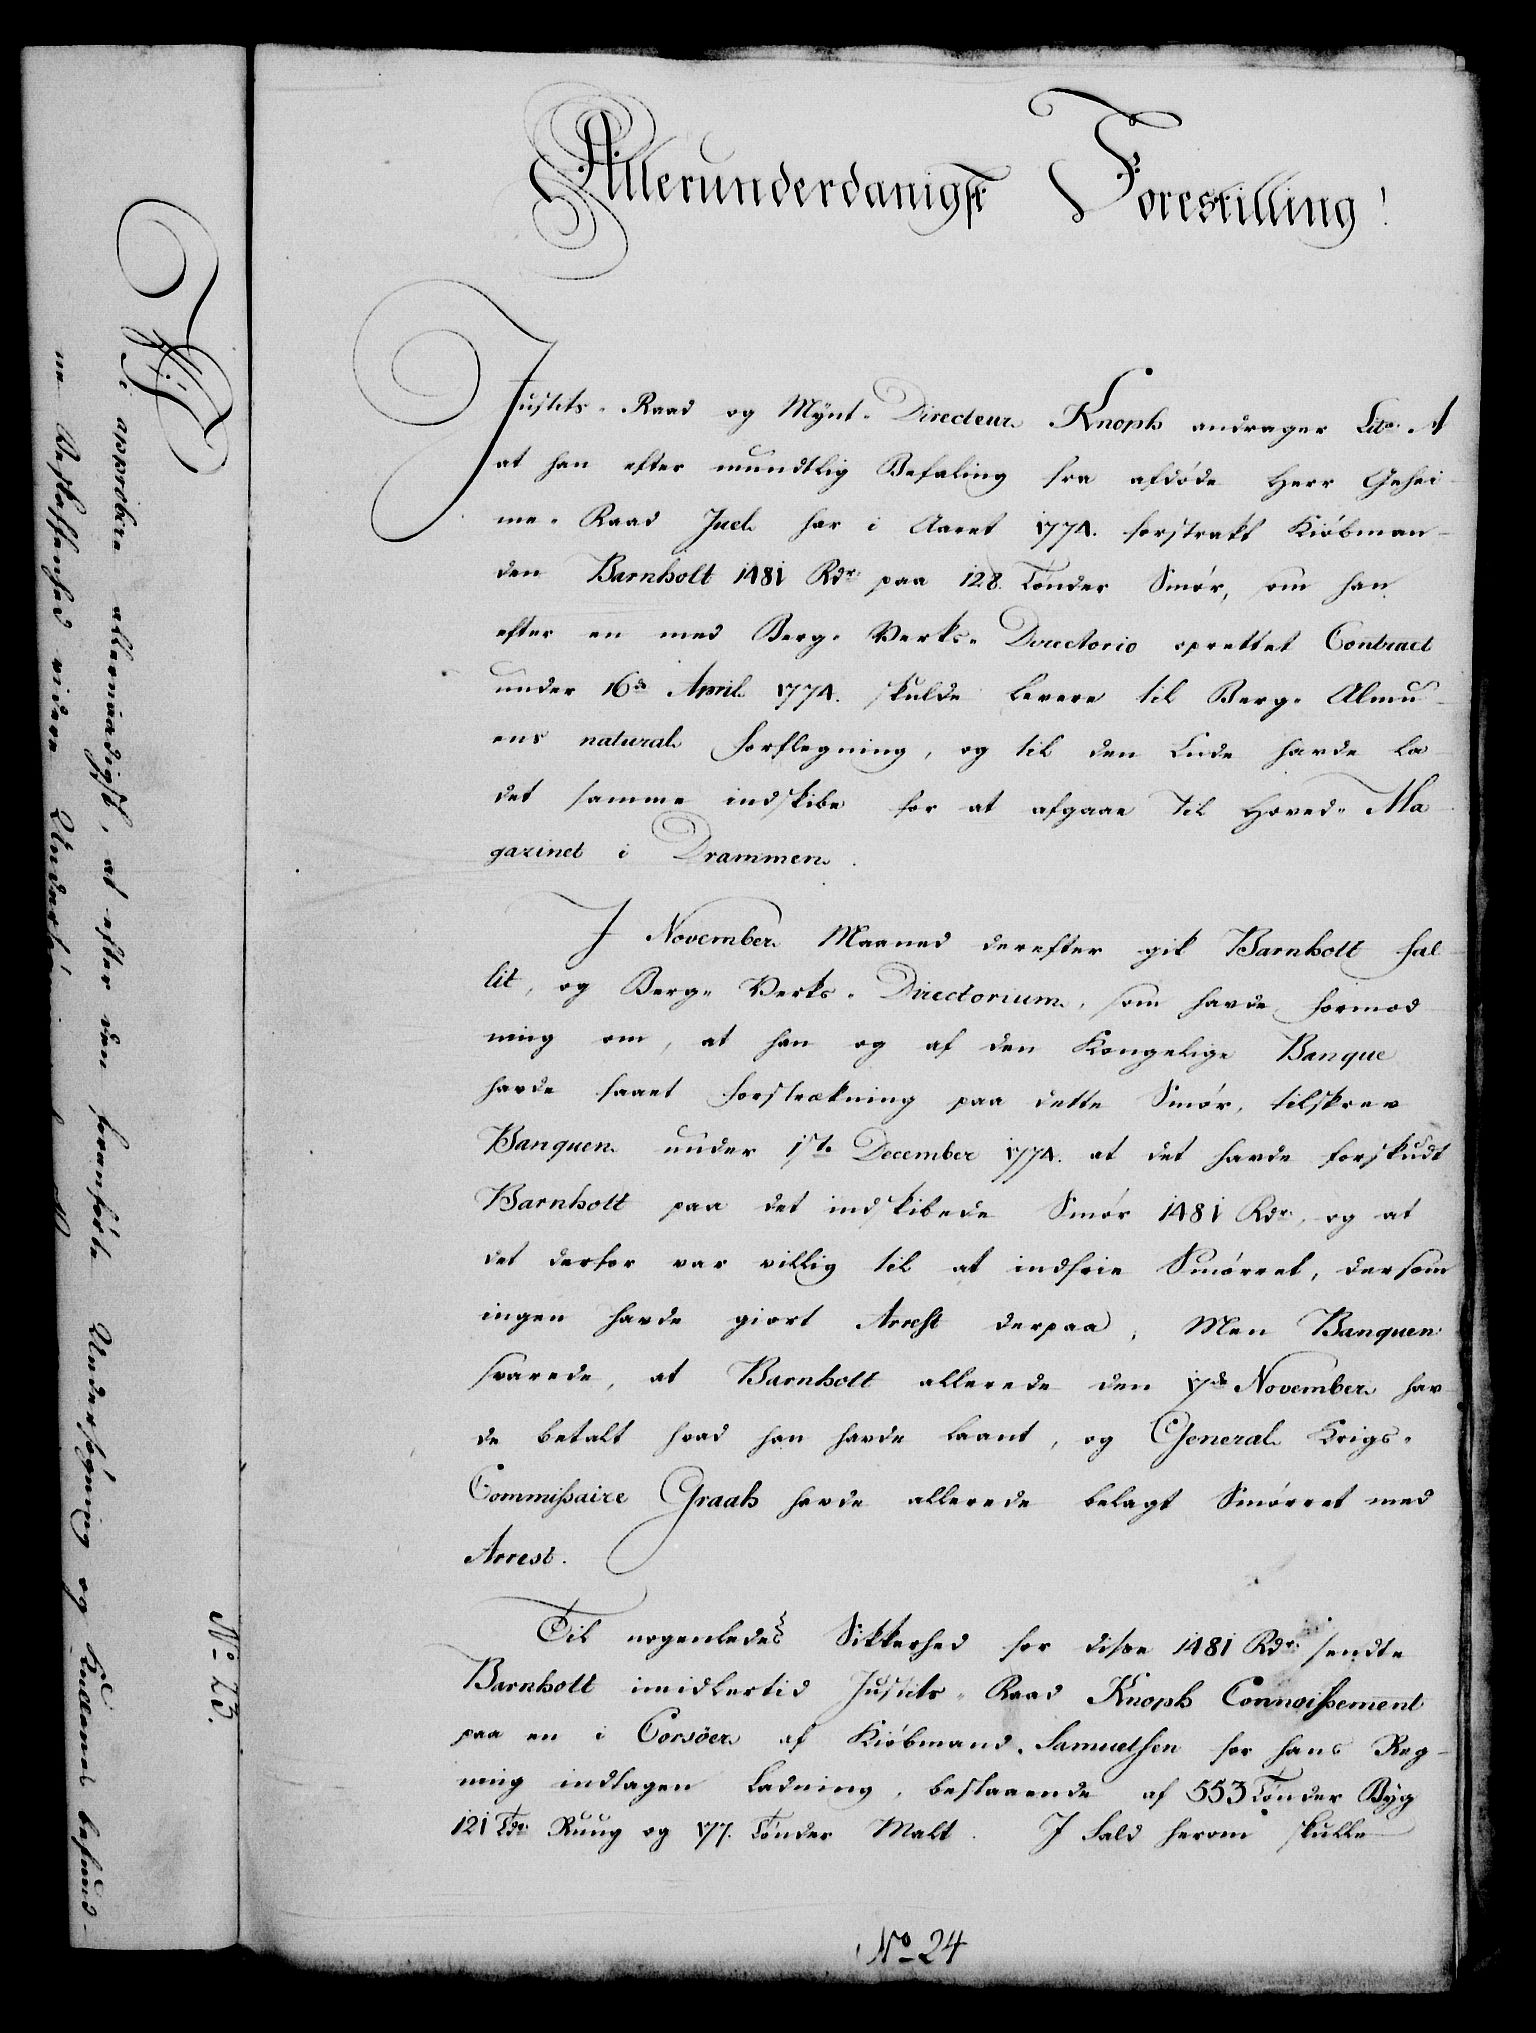 Allerunderdanigst Forestilling!
Justits-Raad og Mynt-Directeur Knoph andrager Litr. A
at han efter mundtlig Befaling fra afdøde Herr Gehei-
me-Raad Juel har i Aaret 1774. forstrakt Kiøbman-
den Barnholt 1481 Rdr. paa 128. Tønder Smør, som han
efter en med Berg-Verks-Directorio oprettet Contract
under 16de April 1774. skulde levere til Berg-Almu-
ens natural Forflegning, og til den Ende havde la-
det samme indskibe for at afgaae til Hoved-Ma-
gazinet i Drammen.
I November Maaned derefter gik Barnholt fal-
lit, og Berg-Verks-Directorium, som havde Formod-
ning om, at han og af den Kongelige Banque
havde faaet Forstrækning paa dette Smør, tilskrev
Banquen under 1ste December 1774. at det havde forskudt
Barnholt paa det indskibede Smør 1481 Rdr., og at
det derfor var villig til at indfrie Smørret, dersom
ingen havde giort Arrest derpaa, Men Banquen
svarede, at Barnholt allerede den 7de November hav-
de betalt hvad han havde laant, og General Krigs-
Commissaire Graah havde allerede belagt Smørret med
Arrest.
Til nogenledes Sikkerhed for disse 1481 Rdr. sendte
Barnholt imidlertid Justits-Raad Knoph Connoissement
paa en i Corsöer af Kiøbmand Samuelsen for hans Reg-
ning indtagen Ladning, bestaaende af 553 Tønder Byg
121 Tdr. Ruug og 77. Tønder Malt. I Fald herom skulle
No 24
Vi approbere allernaadigst, at efter den foranførte Undersøgning og Qvæstionens befund-
ne Beskaffenhed videre
No 23.